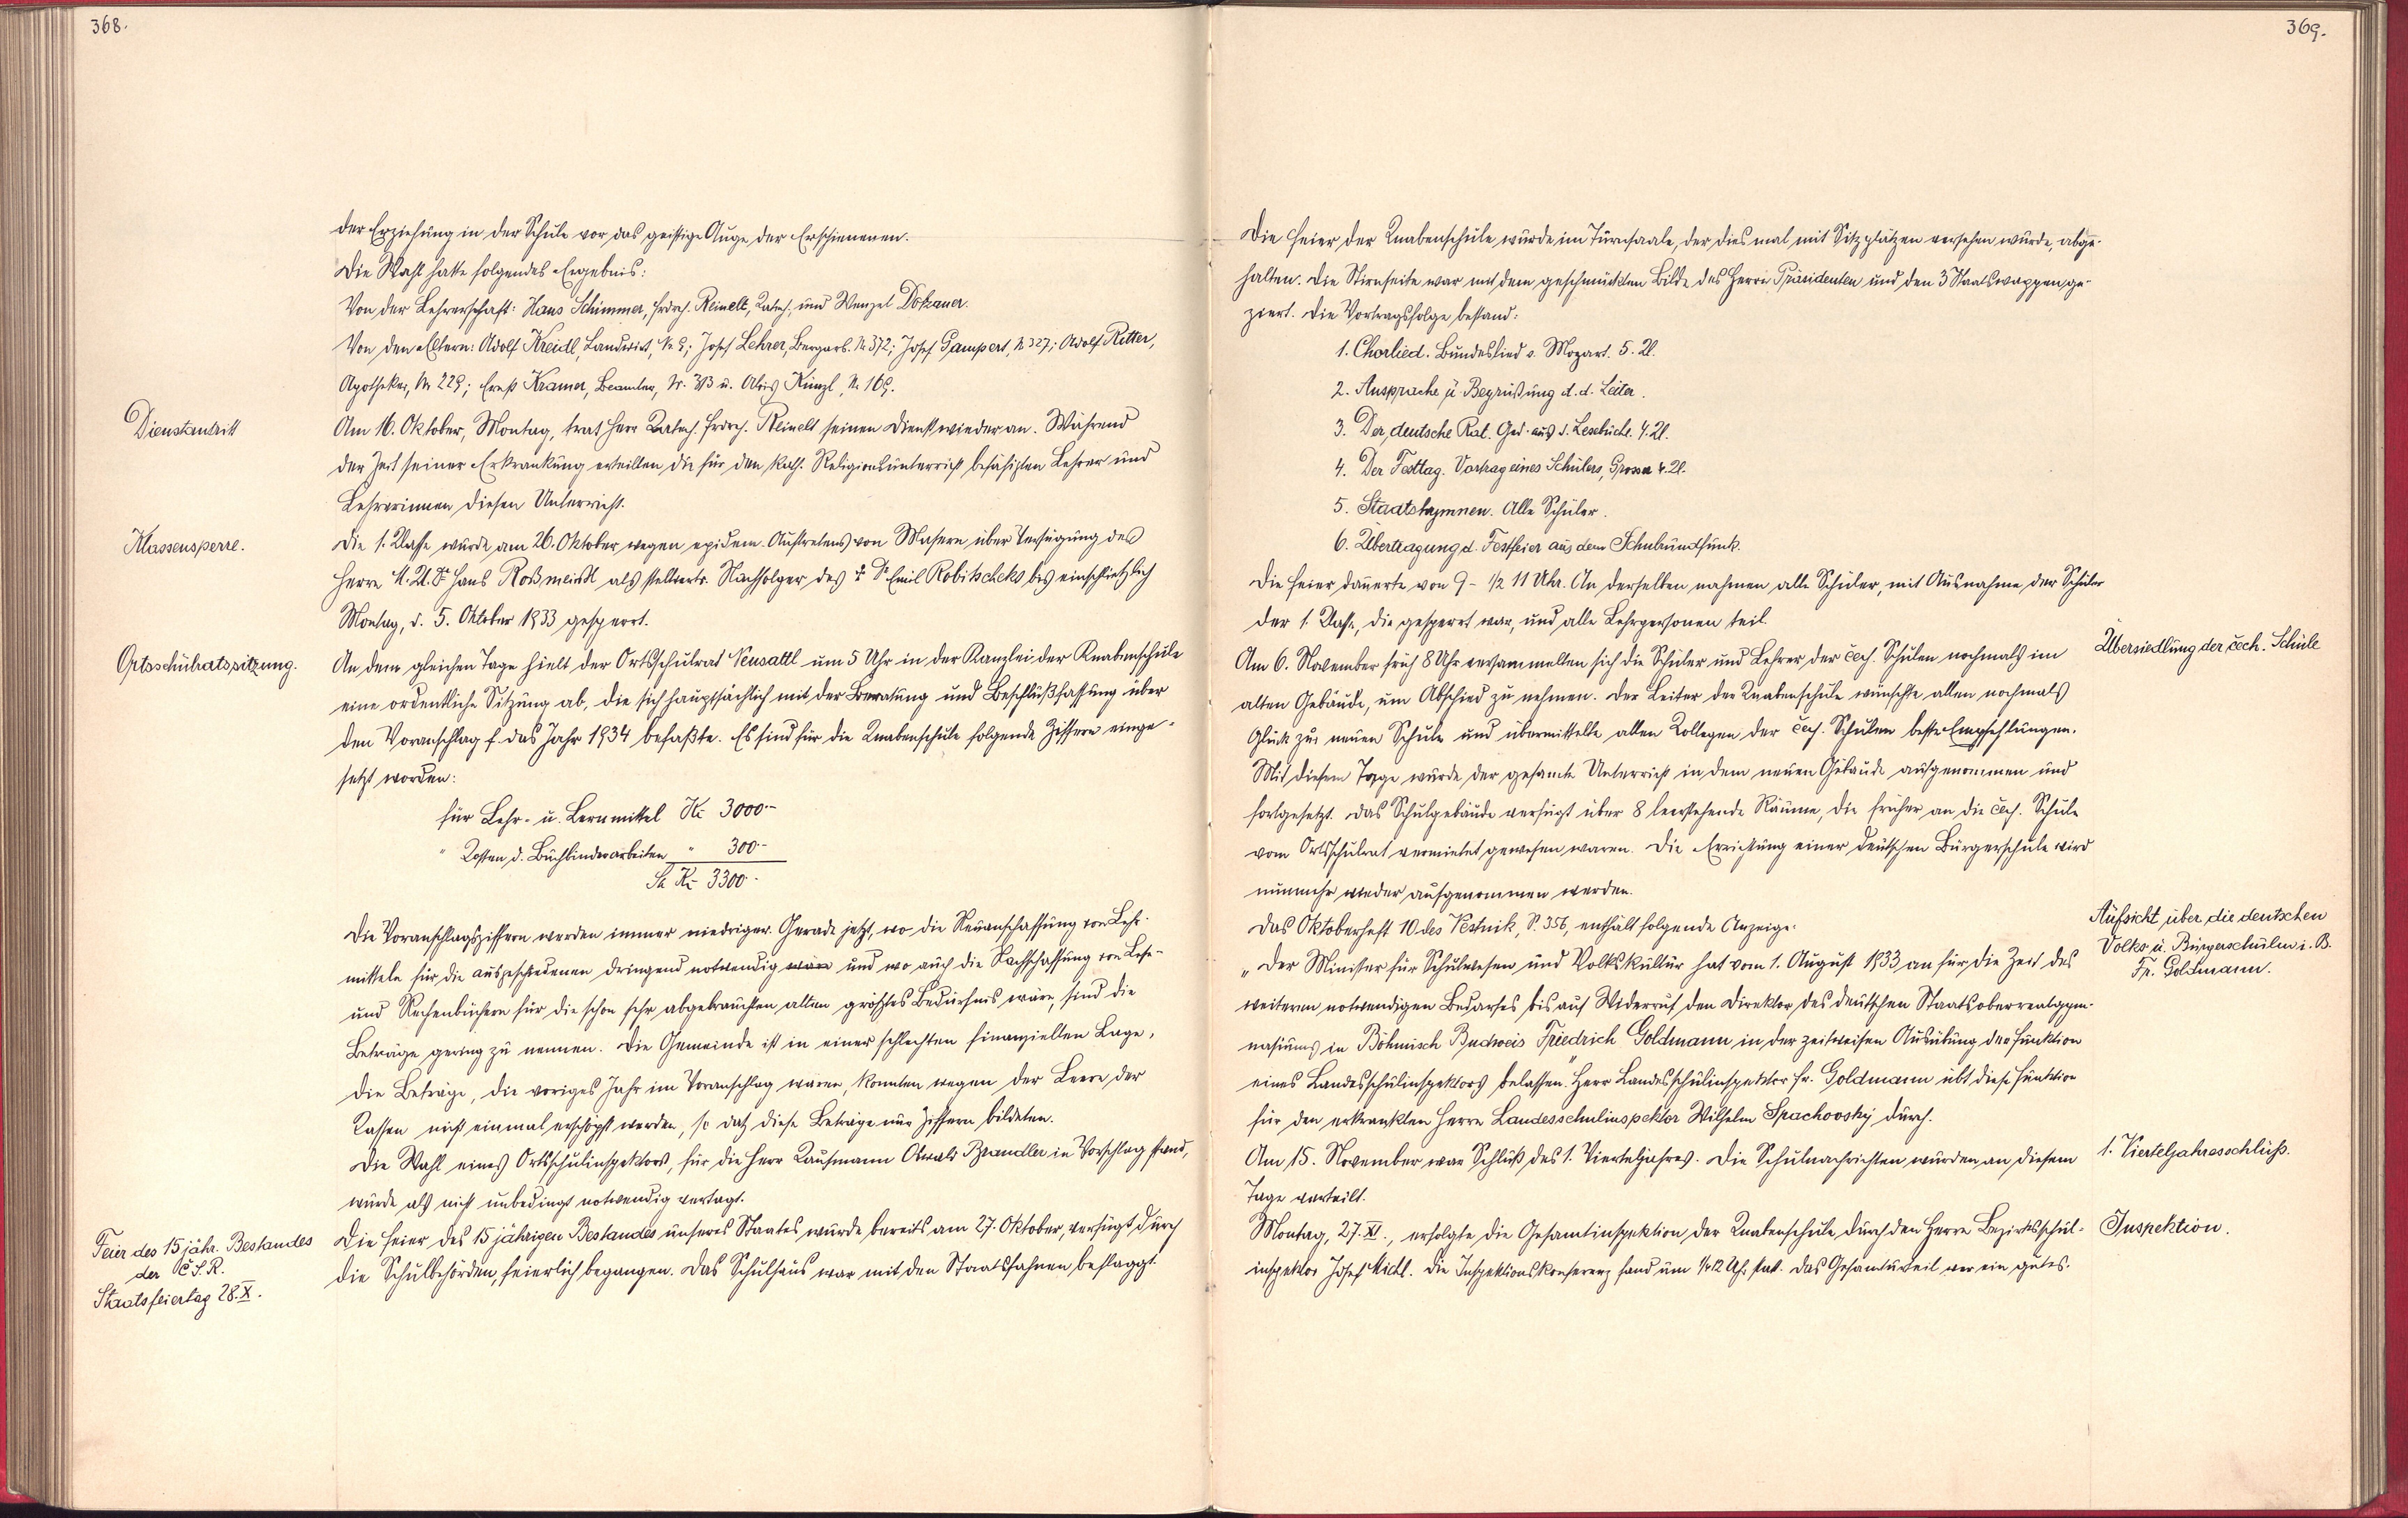 368.
der Erziehung in der Schule vor das geistige Auge der Erschienenen.
Die Wahl hatte folgendes Ergebnis:
Von der Lehrerschaft: Hans Schimmer, Frdrch. Reinelt, Katech. und Wenzel Dotzauer.
Von den Eltern: Adolf Kreidl, Landwirt, Nr. 9; Josef Lehrer, Bergarb. N. 372; Josef Gampert, N. 327; Adolf Ritter,
Apotheker, Nr. 229; Ernst Kramer, Beamter, Nr. 313 u. Alois Künzl, N. 169.
Dienstantritt
Am 16. Oktober, Montag, trat Herr Katech. Frdrch. Reinelt seinen Dienst wieder an. Während
der Zeit seiner Erkrankung erteilten die für den kath. Religionsunterricht befähigten Lehrer und
Lehrerinnen diesen Unterricht.
Klassensperre.
Die 1. Klasse wurde am 26. Oktober wegen epidem. Auftretens von Masern über Verfügung des
Herrn M.U.Dr. Hans Roßmeisl als stellvertr. Nachfolger des † Dr. Emil Robitscheks bis einschließlich
Montag, d. 5. Oktober 1933 gesperrt.
Ortsschulratssitzung.
An dem gleichen Tage hielt der Ortsschulrat Neusattl um 5 Uhr in der Kanzlei der Knabenschule
eine ordentliche Sitzung ab, die sich hauptsächlich mit der Beratung und Beschlußfassung über
den Voranschlag f. das Jahr 1934 befaßte. Es sind für die Knabenschule folgende Ziffern einge-
setzt worden:
für Lehr- u. Lernmittel Kč 3000.-
" Kosten d. Buchbinderarbeiten " 300.-
Sa Kč 3300.-
Die Voranschlagsziffern werden immer niedriger. Gerade jetzt, wo die Neuanschaffung von Lehr-
mitteln für die ausgeschiedenen dringend notwendig wäre und wo auch die Nachschaffung von Lese-
und Rechenbüchern für die schon sehr abgebrauchten alten größtes Bedürfnis wäre, sind die
Beträge gering zu nennen. Die Gemeinde ist in einer schlechten finanziellen Lage,
die Beträge, die voriges Jahr im Voranschlag waren, konnten wegen der Leere der
Kassen nicht einmal erschöpft werden, so daß diese Beträge nur Ziffern bildeten.
Die Wahl eines Ortsschulinspektors, für die Herr Kaufmann Oswald Brandler in Vorschlag stand,
wurde als nicht unbedingt notwendig vertagt.
Feier des 15 jähr. Bestandes
der Č.S.R.
Staatsfeiertag 28. X.
Die Feier des 15 jährigen Bestandes unseres Staates wurde bereits am 27. Oktober, verfügt durch
die Schulbehörden, feierlich begangen. Das Schulhaus war mit den Staatsfahnen beflaggt.
369.
Die Feier der Knabenschule wurde im Turnsaale, der dies mal mit Sitzplätzen versehen wurde, abge-
halten. Die Stirnseite war mit dem geschmückten Bilde des Herrn Präsidenten und den 3 Staatswappen ge-
ziert. Die Vortragsfolge bestand:
1. Chorlied. Bundeslied v. Mozart. 5. Kl.
2. Ansprache u. Begrüßung d. d. Leiter.
3. Der deutsche Rat. Ged. aus d. Lesebuche. 4. Kl.
4. Der Festtag. Vortrag eines Schülers, Grossa 4. Kl.
5. Staatshymnen. Alle Schüler.
6. Übertragung d. Festfeier aus dem Schulrundfunk.
Die Feier dauerte von 9 - 1/2 11 Uhr. An derselben nahmen alle Schüler, mit Ausnahme der Schüler
der 1. Klasse, die gesperrt war, und alle Lehrpersonen teil.
Am 6. November früh 8 Uhr versammelten sich die Schüler und Lehrer der čech. Schulen nochmals im
Übersiedlung der čech. Schule
alten Gebäude, um Abschied zu nehmen. Der Leiter der Knabenschule wünschte allen nochmals
Glück zur neuen Schule und übermittelte allen Kollegen der čech. Schulen beste Empfehlungen.
Mit diesem Tage wurde der gesamte Unterricht in dem neuen Gebäude aufgenommen und
fortgesetzt. Das Schulgebäude verfügt über 8 leerstehende Räume, die früher an die čech. Schule
vom Ortsschulrat vermietet gewesen waren. Die Errichtung einer deutschen Bürgerschule wird
nunmehr wieder aufgenommen werden.
Das Oktoberheft 10 des Vestnik, S. 356, enthält folgende Anzeige:
Aufsicht über die deutschen
Volks- u. Bürgerschulen i. B.
Fr. Goldmann.
„Der Minister für Schulwesen und Volkskultur hat vom 1. August 1933 an für die Zeit des
weiteren notwendigen Bedarfes bis auf Widerruf den Direktor des deutschen Staatsoberrealgym-
nasiums in Böhmisch Budweis Friedrich Goldmann in der zeitweisen Ausübung der Funktion
eines Landesschulinspektors belassen." Herr Landesschulinspektor Fr. Goldmann übt diese Funktion
für den erkrankten Herrn Landesschulinspektor Wilhelm Spachovsky durch.
Am 15. November war Schluß des 1. Vierteljahres. Die Schulnachrichten wurden an diesem
1. Vierteljahresschluss.
Tage verteilt.
Montag, 27. XI., erfolgte die Gesamtinspektion der Knabenschule durch den Herrn Bezirksschul-
Inspektion.
inspektor Josef Michl. Die Inspektionskonferenz fand um 1/2 12 Uhr statt. Das Gesamturteil war ein gutes.